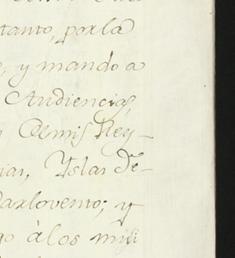 tanto, por la
, y mando a
Audiencias,
de mis Rey-
ias, Yslas de
Barlovento; y
go à los mis